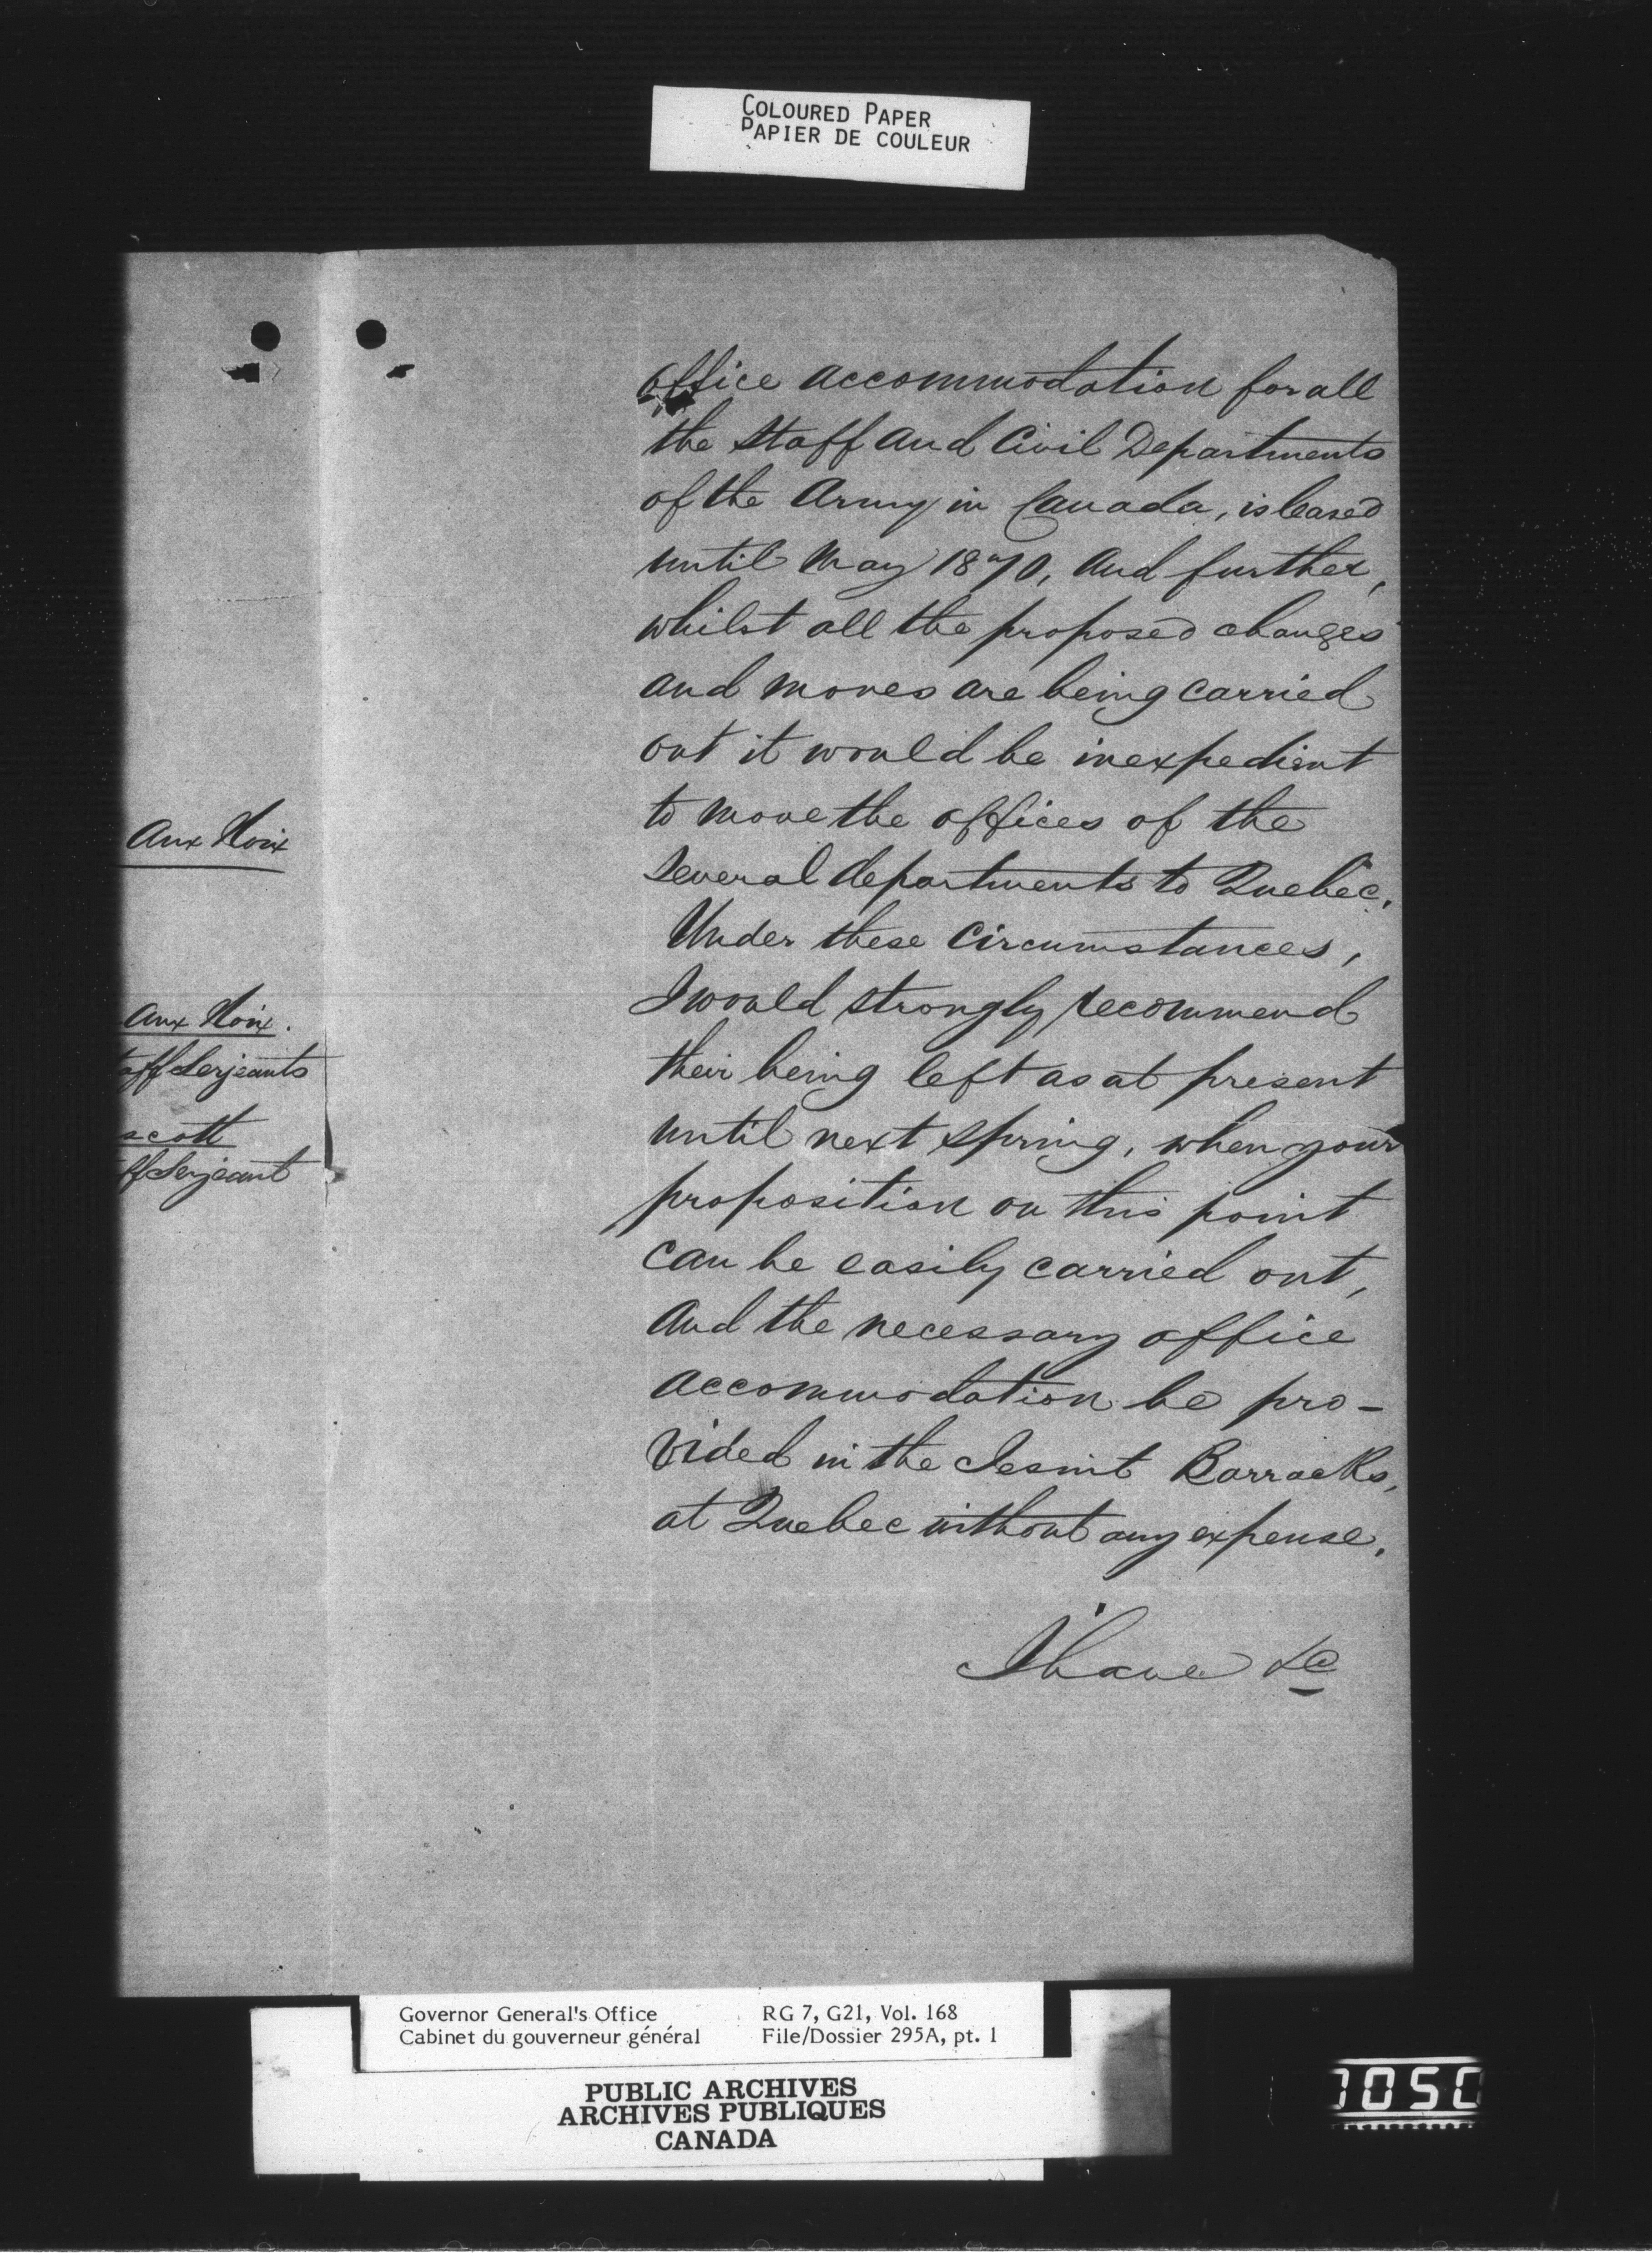 COLOURED PAPER
PAPIER DE COULEUR
office accommodation for all
the Staff and Civil Departments
of the Army in Canada, is leased
until May 1870, and further,
whilst all the proposed changes
and moves are being carried
out it would be inexpedient
to move the offices of the
several departments to Quebec.
Under these circumstances,
I would strongly recommend
their being left as at present
until next spring, when your
proposition on this point
can be easily carried out,
and the necessary office
accommodation be pro-
vided in the Jesuit Barracks,
at Quebec without any expense.
I have &c
Aux Noix
Aux Noix.
taff Serjeants
scott
ff Serjeant
Governor General's Office
Cabinet du gouverneur général
RG 7, G21, Vol. 168
File/Dossier 295A, pt. 1
PUBLIC ARCHIVES
ARCHIVES PUBLIQUES
CANADA
1050